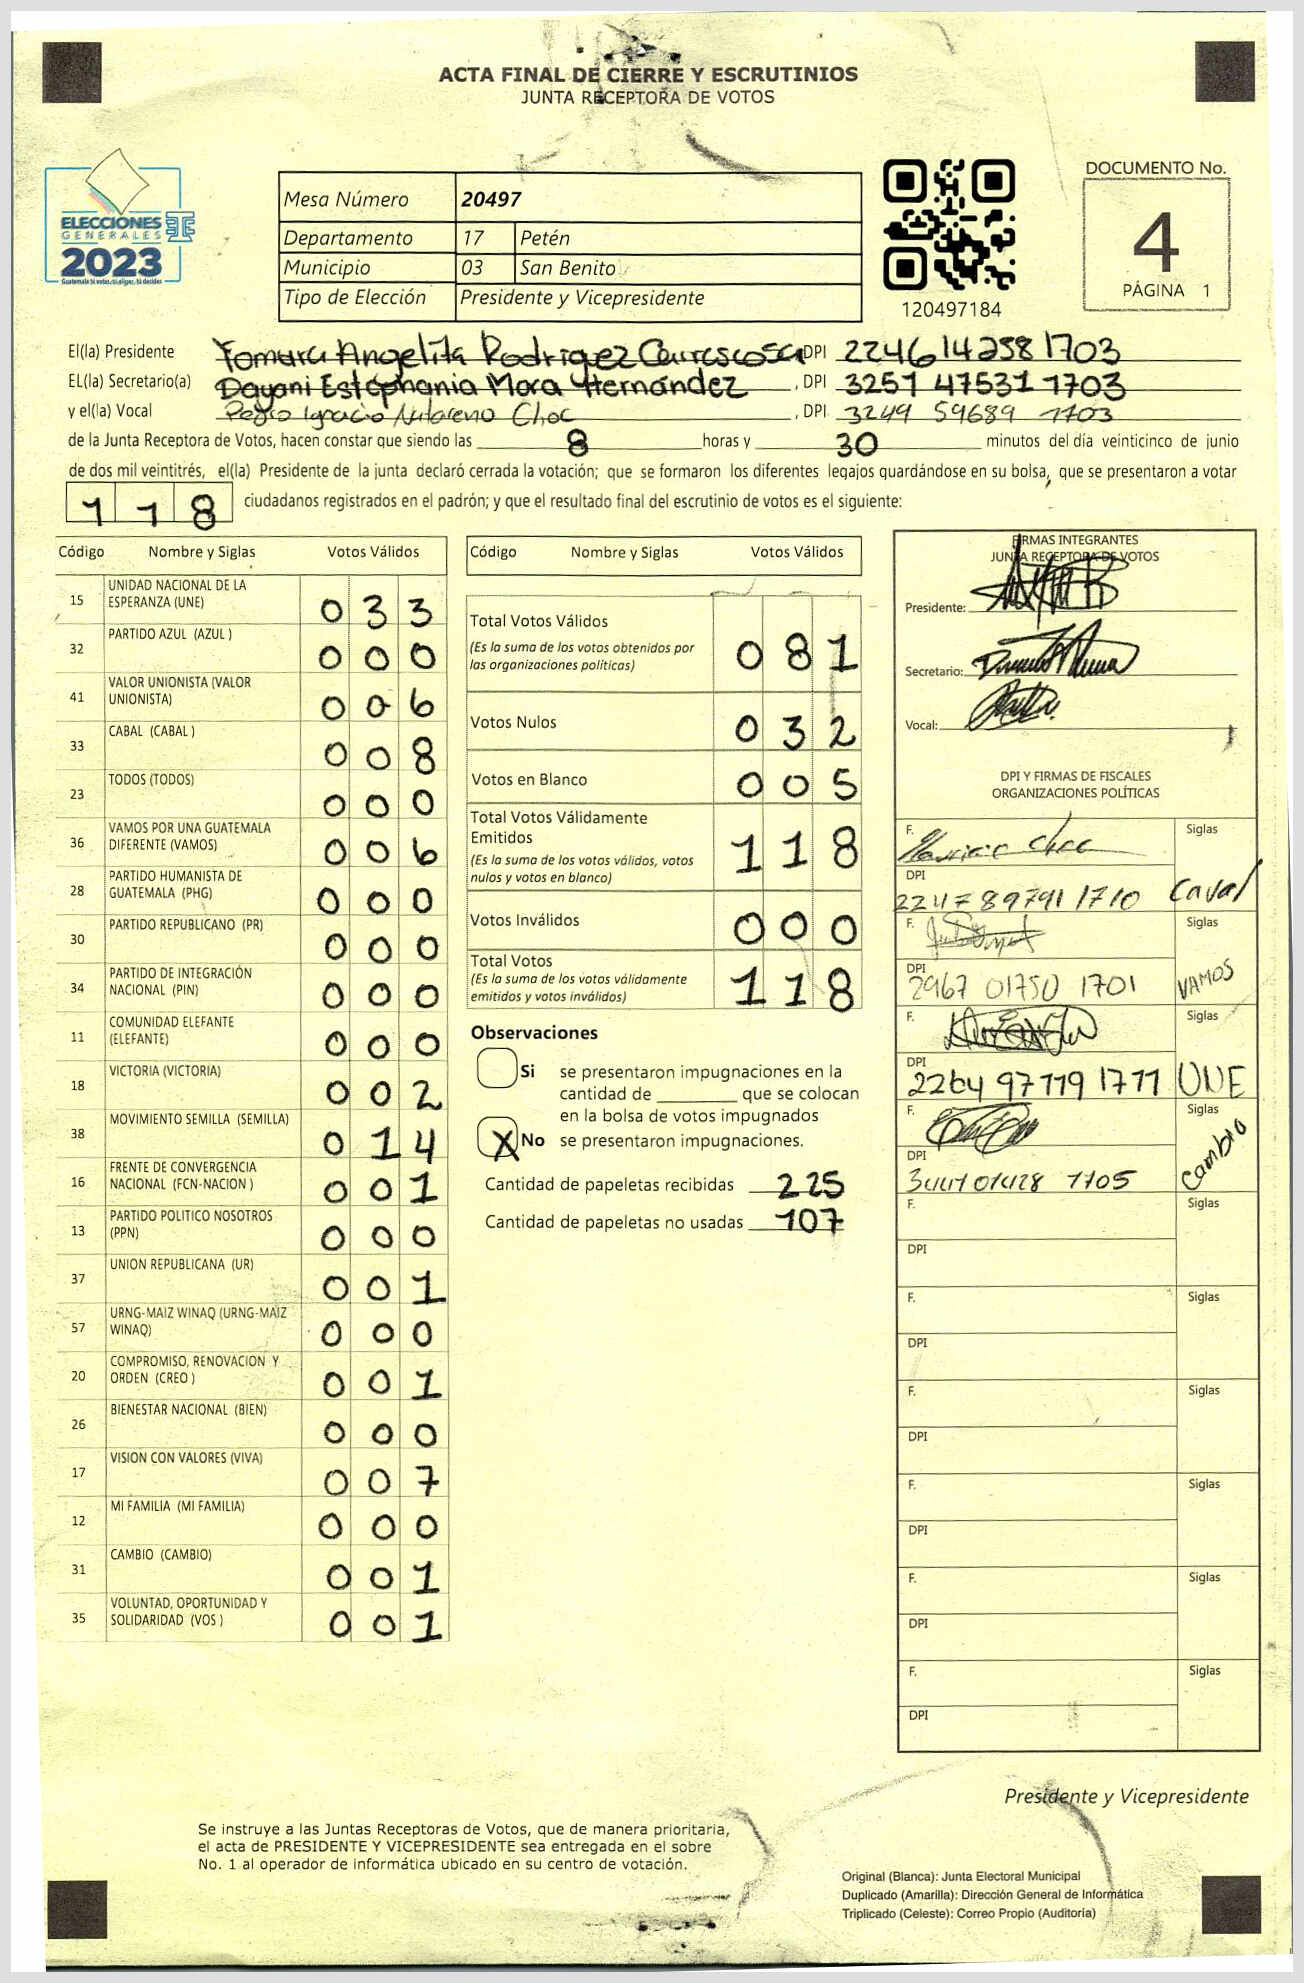 ACTA FINAL DE CIERRE Y ESCRUTINIOS
JUNTA RECEPTORA DE VOTOS
ELECCIONES
GENERALES
2023
Guatemala tú votas, tú eliges, tú decides
Mesa Número 20497
Departamento 17 Petén
Municipio 03 San Benito
Tipo de Elección Presidente y Vicepresidente
120497184
DOCUMENTO No.
4
PÁGINA 1
El(la) Presidente Yomara Angelita Rodriguez Carrascosa DPI 2246 14258 1703
EL(la) Secretario(a) Dayani Estephania Mora Hernández , DPI 3251 47531 1703
y el(la) Vocal Pedro Ignacio Choc , DPI 3249 59689 1703
de la Junta Receptora de Votos, hacen constar que siendo las 8 horas y 30 minutos del día veinticinco de junio
de dos mil veintitrés, el(la) Presidente de la junta declaró cerrada la votación; que se formaron los diferentes legajos guardándose en su bolsa, que se presentaron a votar
118 ciudadanos registrados en el padrón; y que el resultado final del escrutinio de votos es el siguiente:
Código Nombre y Siglas Votos Válidos
15 UNIDAD NACIONAL DE LA ESPERANZA (UNE) 033
32 PARTIDO AZUL (AZUL ) 000
41 VALOR UNIONISTA (VALOR UNIONISTA) 006
33 CABAL (CABAL ) 008
23 TODOS (TODOS) 000
36 VAMOS POR UNA GUATEMALA DIFERENTE (VAMOS) 006
28 PARTIDO HUMANISTA DE GUATEMALA (PHG) 000
30 PARTIDO REPUBLICANO (PR) 000
34 PARTIDO DE INTEGRACIÓN NACIONAL (PIN) 000
11 COMUNIDAD ELEFANTE (ELEFANTE) 000
18 VICTORIA (VICTORIA) 002
38 MOVIMIENTO SEMILLA (SEMILLA) 014
16 FRENTE DE CONVERGENCIA NACIONAL (FCN-NACION ) 001
13 PARTIDO POLITICO NOSOTROS (PPN) 000
37 UNION REPUBLICANA (UR) 001
57 URNG-MAIZ WINAQ (URNG-MAIZ WINAQ) 000
20 COMPROMISO, RENOVACION Y ORDEN (CREO ) 001
26 BIENESTAR NACIONAL (BIEN) 000
17 VISION CON VALORES (VIVA) 007
12 MI FAMILIA (MI FAMILIA) 000
31 CAMBIO (CAMBIO) 001
35 VOLUNTAD, OPORTUNIDAD Y SOLIDARIDAD (VOS ) 001
Código Nombre y Siglas Votos Válidos
Total Votos Válidos 081
(Es la suma de los votos obtenidos por
las organizaciones políticas)
Votos Nulos 032
Votos en Blanco 005
Total Votos Válidamente
Emitidos 118
(Es la suma de los votos válidos, votos
nulos y votos en blanco)
Votos Inválidos 000
Total Votos 118
(Es la suma de los votos válidamente
emitidos y votos inválidos)
Observaciones
Si se presentaron impugnaciones en la
cantidad de ________ que se colocan
en la bolsa de votos impugnados
X No se presentaron impugnaciones.
Cantidad de papeletas recibidas 225
Cantidad de papeletas no usadas 107
FIRMAS INTEGRANTES
JUNTA RECEPTORA DE VOTOS
Presidente:
Secretario:
Vocal:
DPI Y FIRMAS DE FISCALES
ORGANIZACIONES POLÍTICAS
F. Siglas
DPI
2247 89791 1710 Caval
F. Siglas
DPI
2967 01750 1701 VAMOS
F. Siglas
DPI
2264 97119 1711 UNE
F. Siglas
DPI
1705 Cambio
F. Siglas
DPI
F. Siglas
DPI
F. Siglas
DPI
F. Siglas
DPI
F. Siglas
DPI
F. Siglas
DPI
Presidente y Vicepresidente
Se instruye a las Juntas Receptoras de Votos, que de manera prioritaria,
el acta de PRESIDENTE Y VICEPRESIDENTE sea entregada en el sobre
No. 1 al operador de informática ubicado en su centro de votación.
Original (Blanca): Junta Electoral Municipal
Duplicado (Amarilla): Dirección General de Informática
Triplicado (Celeste): Correo Propio (Auditoría)